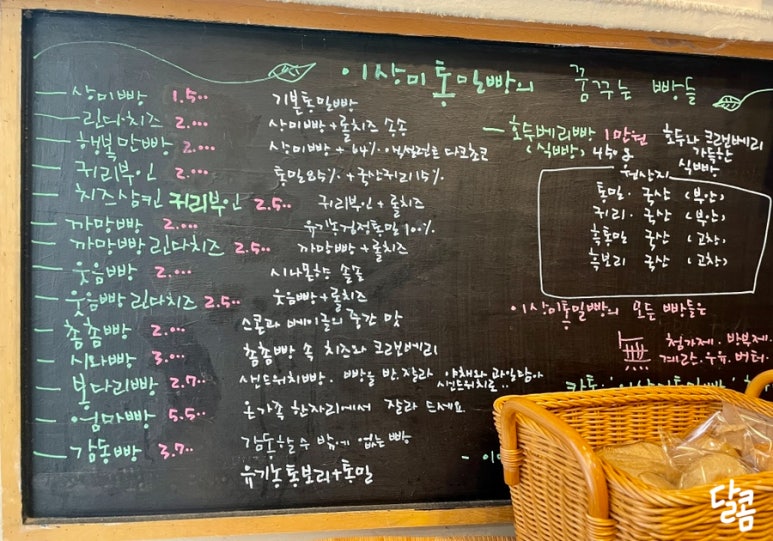 이상미통밀빵의 꿈꾸는 빵들
상미빵 1.5·· 기본통밀빵
린다치즈 2.··· 상미빵 + 롤치즈 송송
행복만빵 2.··· 상미빵 + 64% 다크초코
귀리부인 2.··· 통밀85% + 국산귀리15%
치즈삼킨 귀리부인 2.5·· 귀리부인 + 롤치즈
까망빵 2.··· 유기농검정통밀 100%
까망빵 린다치즈 2.5·· 까망빵 + 롤치즈
웃음빵 2.··· 시나몬향 솔솔
웃음빵 린다치즈 2.5·· 웃음빵 + 롤치즈
촘촘빵 2.··· 스콘과 베이글의 중간 맛
시와빵 3.··· 촘촘빵 속 치즈와 크랜베리
봇다리빵 2.7·· 샌드위치빵. 빵을 반 잘라 야채와 과일담아
샌드위치로
엄마빵 5.5·· 온가족 한자리에서 잘라 드세요
감동빵 3.7·· 감동할 수 밖에 없는 빵
유기농통보리+통밀
호두베리빵 1만원 호두와 크랜베리
(식빵) 450g 가득한
식빵
원산지
통밀 · 국산 (부안)
귀리 · 국산 (부안)
흑통밀 국산 (고창)
흑보리 국산 (고창)
이상미통밀빵의 모든 빵들은
첨가제 · 방부제
계란 · 우유 · 버터
달콤